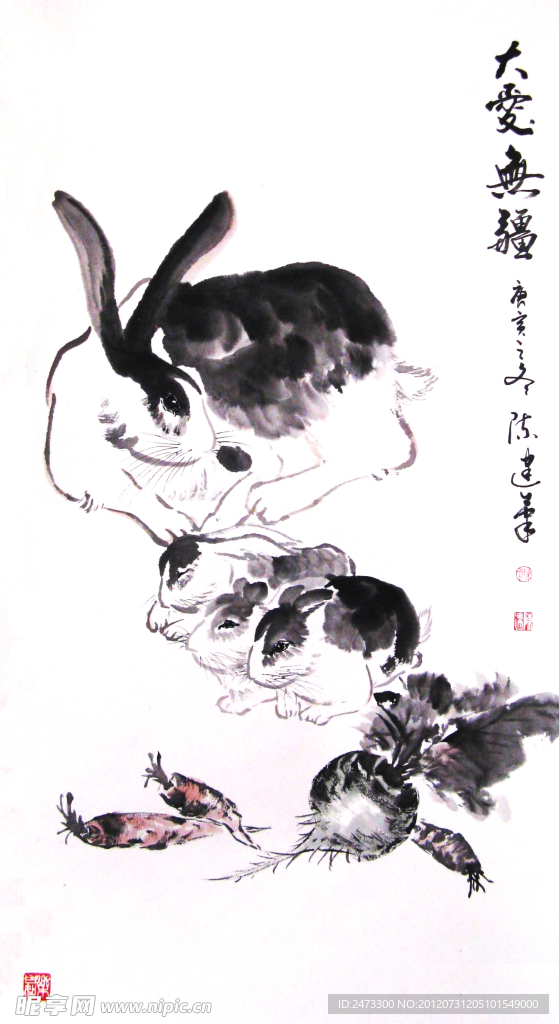 大愛無疆
庚寅之冬 陈建華
昵享网 www.nipic.cn
ID:2473300 NO:20120731205101549000